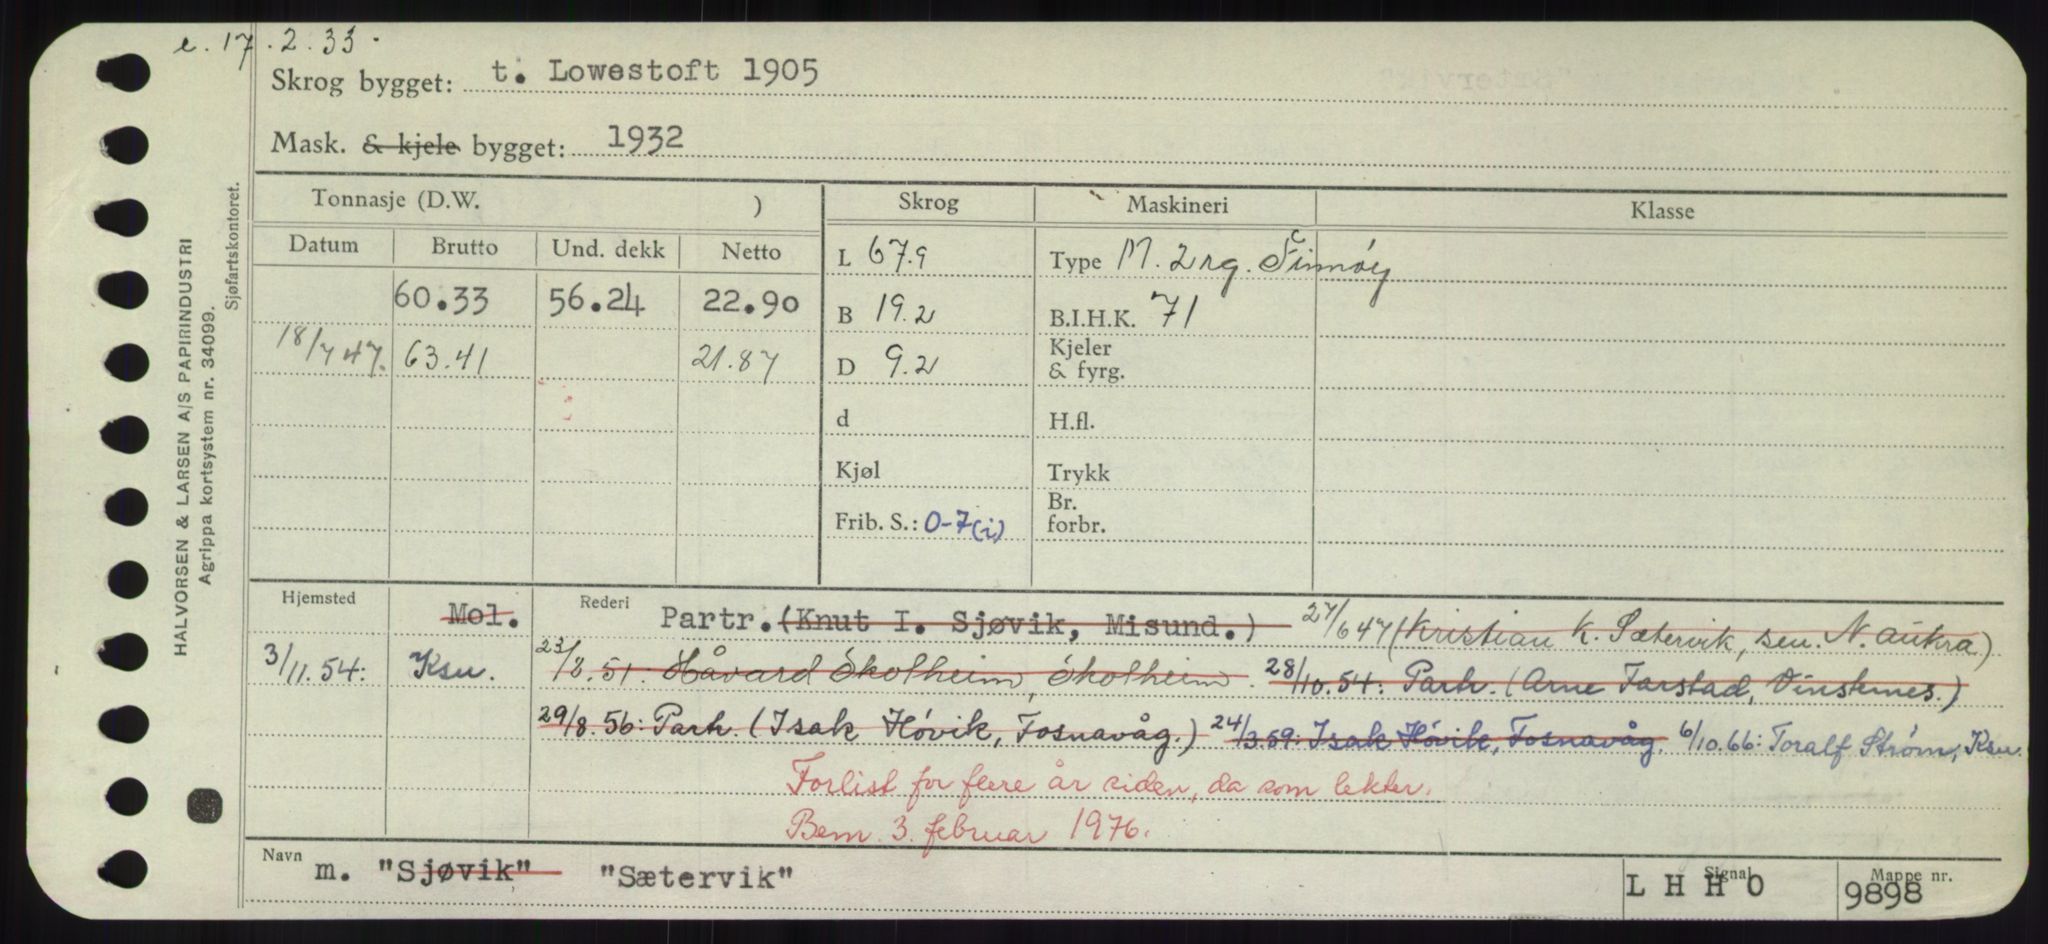 e. 17.2.33.
Skrog bygget: t. Lowestoft 1905
Mask. & kjele bygget: 1932
Tonnasje (D.W. ) Skrog Maskineri Klasse
Datum Brutto Und. dekk Netto L 67.9 Type M. 2 rg. Finnøy
60.33 56.24 22.90 B 19.2 B.I.H.K. 71
18/7 47. 63.41 21.87 D 9.2 Kjeler & fyrg.
d H.fl.
Kjøl Trykk
Frib. S.: 0-7(i) Br. forbr.
Hjemsted Mol. Rederi Partr. (Knut I. Sjøvik, Misund.) 27/6 47 (Kristian K. Sætervik, sen. N. Aukra)
3/11.54: Ksu. 23/8.51. Håvard Skolheim, Skolheim. 28/10.54: Partr. (Arne Farstad, Vinsternes.)
29/8.56: Partr. (Isak Høvik, Fosnavåg.) 24/3.59: Isak Høvik, Fosnavåg. 6/10.66: Toralf Strøm, Ksu.
Forlist for flere år siden, da som lekter.
Bem. 3. februar 1976.
Navn m. "Sjøvik" "Sætervik" Signal L H H O Mappe nr. 9898
HALVORSEN & LARSEN A/S PAPIRINDUSTRI
Agrippa kortsystem nr. 34099.
Sjøfartskontoret.